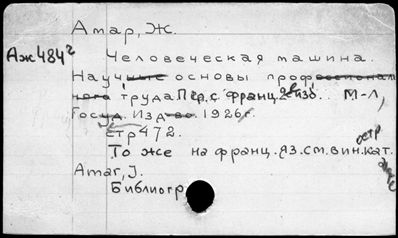 Амар, Ж.
Аж 484²
Человеческая машина.
Научные основы профессионального
труда. Пер. с франц. 2е изд. М-Л,
Госуд. Изд-во. 1926г.
стр 472.
То же на франц. яз. см. вин. кат.
Amar, J.
Библиогр